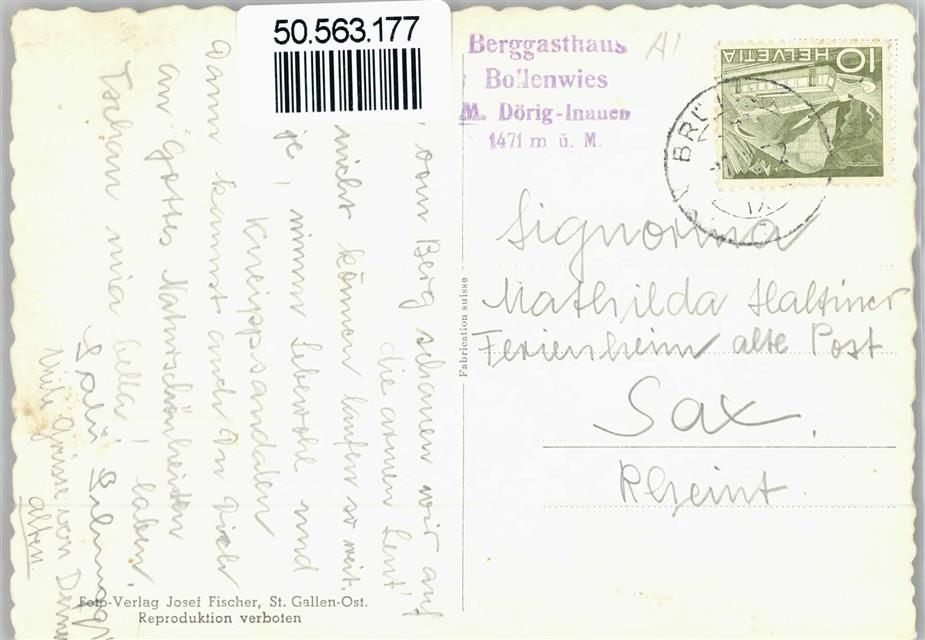 50.563.177
Berggasthaus
Bollenwies
M. Dörig-Inauen
1471 m ü. M.
A1
HELVETIA
10
BRÜ
Signorina
Mathilda Haltiner
Ferienheim alte Post
Sax.
Rheint.
Fabrication suisse
vom Berg schauen wir auf
die armen Leut'
nicht können laufen so weit.
je, nimm Lebewohl und
Kneippsandalen
Dann kannst auch Du Dich
an Gottes Naturschönheiten
laben.
Tschau mia bella!
Viele Grüsse von Deinen
alten
Foto-Verlag Josef Fischer, St. Gallen-Ost.
Reproduktion verboten